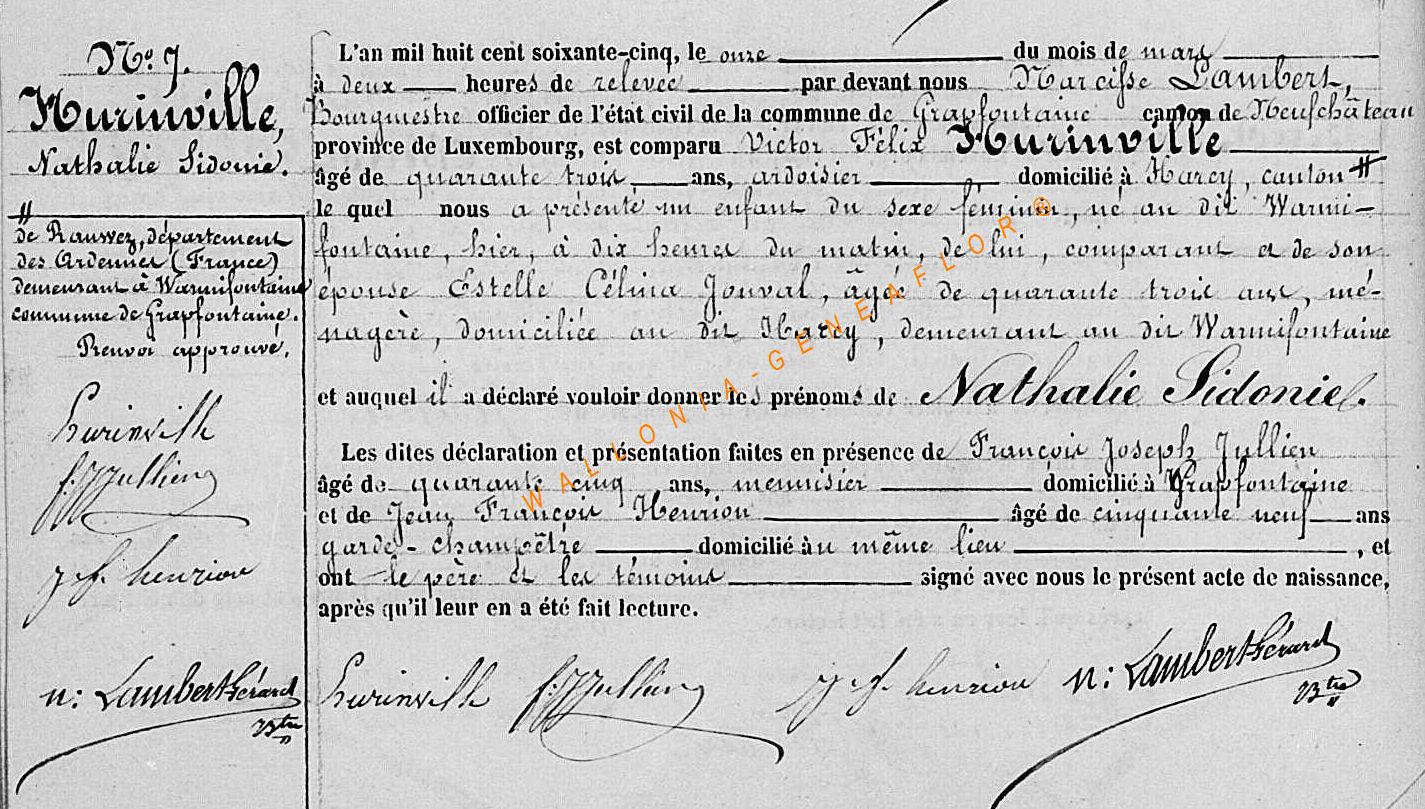 N° 7.
Hurinville,
Nathalie Sidonie.
#
de Rauwez, département
des Ardennes (France)
demeurant à Warmifontaine
commune de Grapfontaine.
Renvoi approuvé.
hurinville
f. J Jullien
j. f. henrion
n: Lambert Gérard
Btre
L'an mil huit cent soixante-cinq, le onze du mois de mars
à deux heures de relevée par devant nous Narcisse Lambert,
Bourgmestre officier de l'état civil de la commune de Grapfontaine canton de Neufchâteau
province de Luxembourg, est comparu Victor Félix Hurinville
âgé de quarante trois, ans, ardoisier domicilié à Harcy, canton #
le quel nous a présenté un enfant du sexe féminin, né au dit Warmi-
fontaine, hier, à dix heures du matin, de lui, comparant et de son
épouse Estelle Célina Jonval, âgée de quarante trois ans, mé-
nagère, domiciliée au dit Harcy, demeurant au dit Warmifontaine
et auquel il a déclaré vouloir donner les prénoms de Nathalie Sidonie.
Les dites déclaration et présentation faites en présence de François Joseph Jullien
âgé de quarante cinq ans, menuisier domicilié à Grapfontaine
et de Jean François Henrion âgé de cinquante neuf ans
garde-champêtre domicilié àu même lieu , et
ont le père et les témoins signé avec nous le présent acte de naissance,
après qu'il leur en a été fait lecture.
hurinville f. J Jullien j. f. henrion n: Lambert Gérard
Btre
WALLONIA-GENEAFLOR®